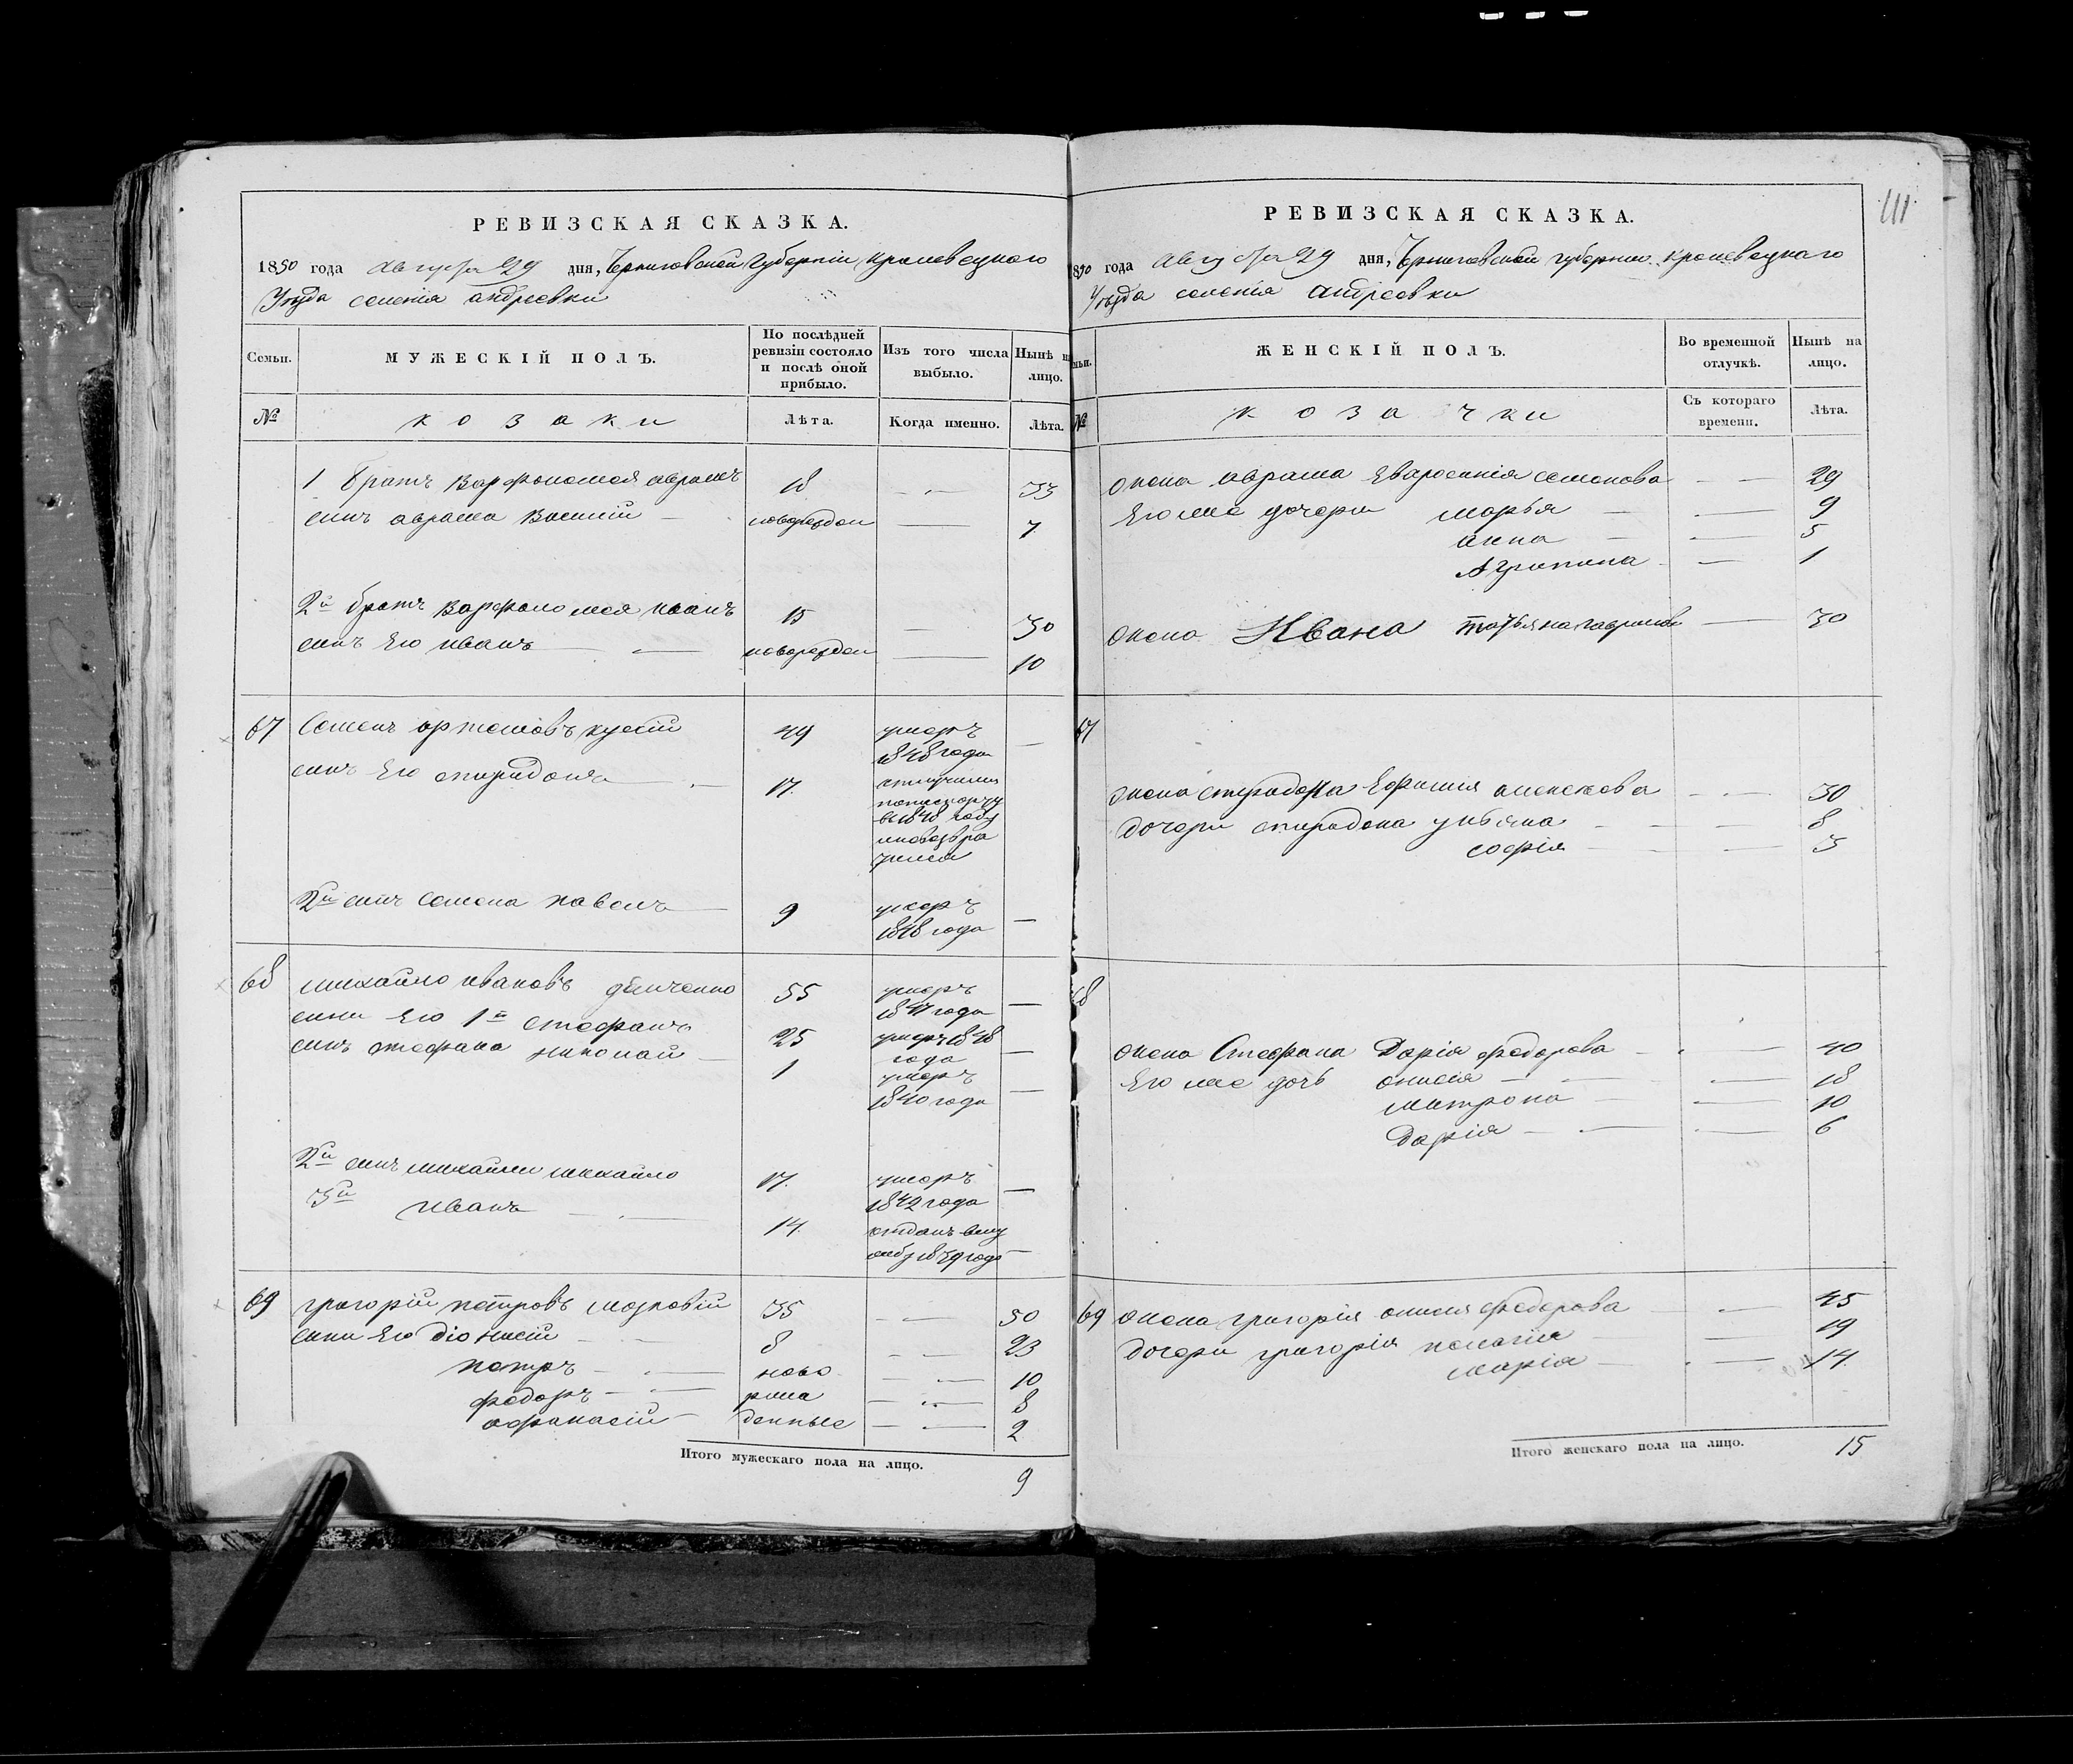 РЕВИЗСКАЯ СКАЗКА.
1850 года Августа 29 дня, Черниговской Губернии, Кролевецкого
Уѣзда селенія андреевки
Семьи.
МУЖЕСКІЙ ПОЛЪ.
По послѣдней ревизіи состояло и послѣ оной прибыло.
Изъ того числа выбыло.
Нынѣ на лицо.
№
козаки
Лѣта.
Когда именно.
Лѣта.
1 братъ Варфоломея аврамъ 18 33
синъ аврама Василій новорожден 7
2й братъ Варфоломея иванъ 15 30
синъ Его иванъ новорожден 10
67 Семенъ артемовъ 49 умеръ 1848 года
синъ Его спиридонъ 17 отлучился
по
в 1848 году
и невозвра
тился
2й синъ Семена павелъ 9 умеръ
1848 года
68 михайло ивановъ 55 умеръ
1847 года
сини Его 1й стефанъ 25 умеръ 1848
года
синъ стефана николай 1 умеръ
1840 года
2й синъ михайли михайло 17 умеръ
1842 года
3й иванъ 14 отданъ
года
69 григорій петровъ 35 50
сини Его діонисій 8 23
петръ ново 10
федоръ рож 8
афанасій денные 2
Итого мужескаго пола на лицо.
9
РЕВИЗСКАЯ СКАЗКА.
111
1850 года Августа 29 дня, Черниговской губернии Кролевецкаго
Уѣзда селенія андреевки
Семьи.
ЖЕНСКІЙ ПОЛЪ.
Во временной отлучкѣ.
Нынѣ на лицо.
№
козачки
Съ котораго времени.
Лѣта.
жена аврама семенова 29
Его же дочери марья 9
анна 5
Агрипина 1
жена Ивана татьяна 30
67
жена спиридона Ефимия алексеева 30
дочери спиридона ульяна 8
софія 3
68
жена Стефана Дарія федорова 40
Его же дочь анисія 18
матрона 10
Дарія 6
69 жена григорія анисия федорова 45
дочери григорія пелагия 19
марія 14
Итого женскаго пола на лицо.
15